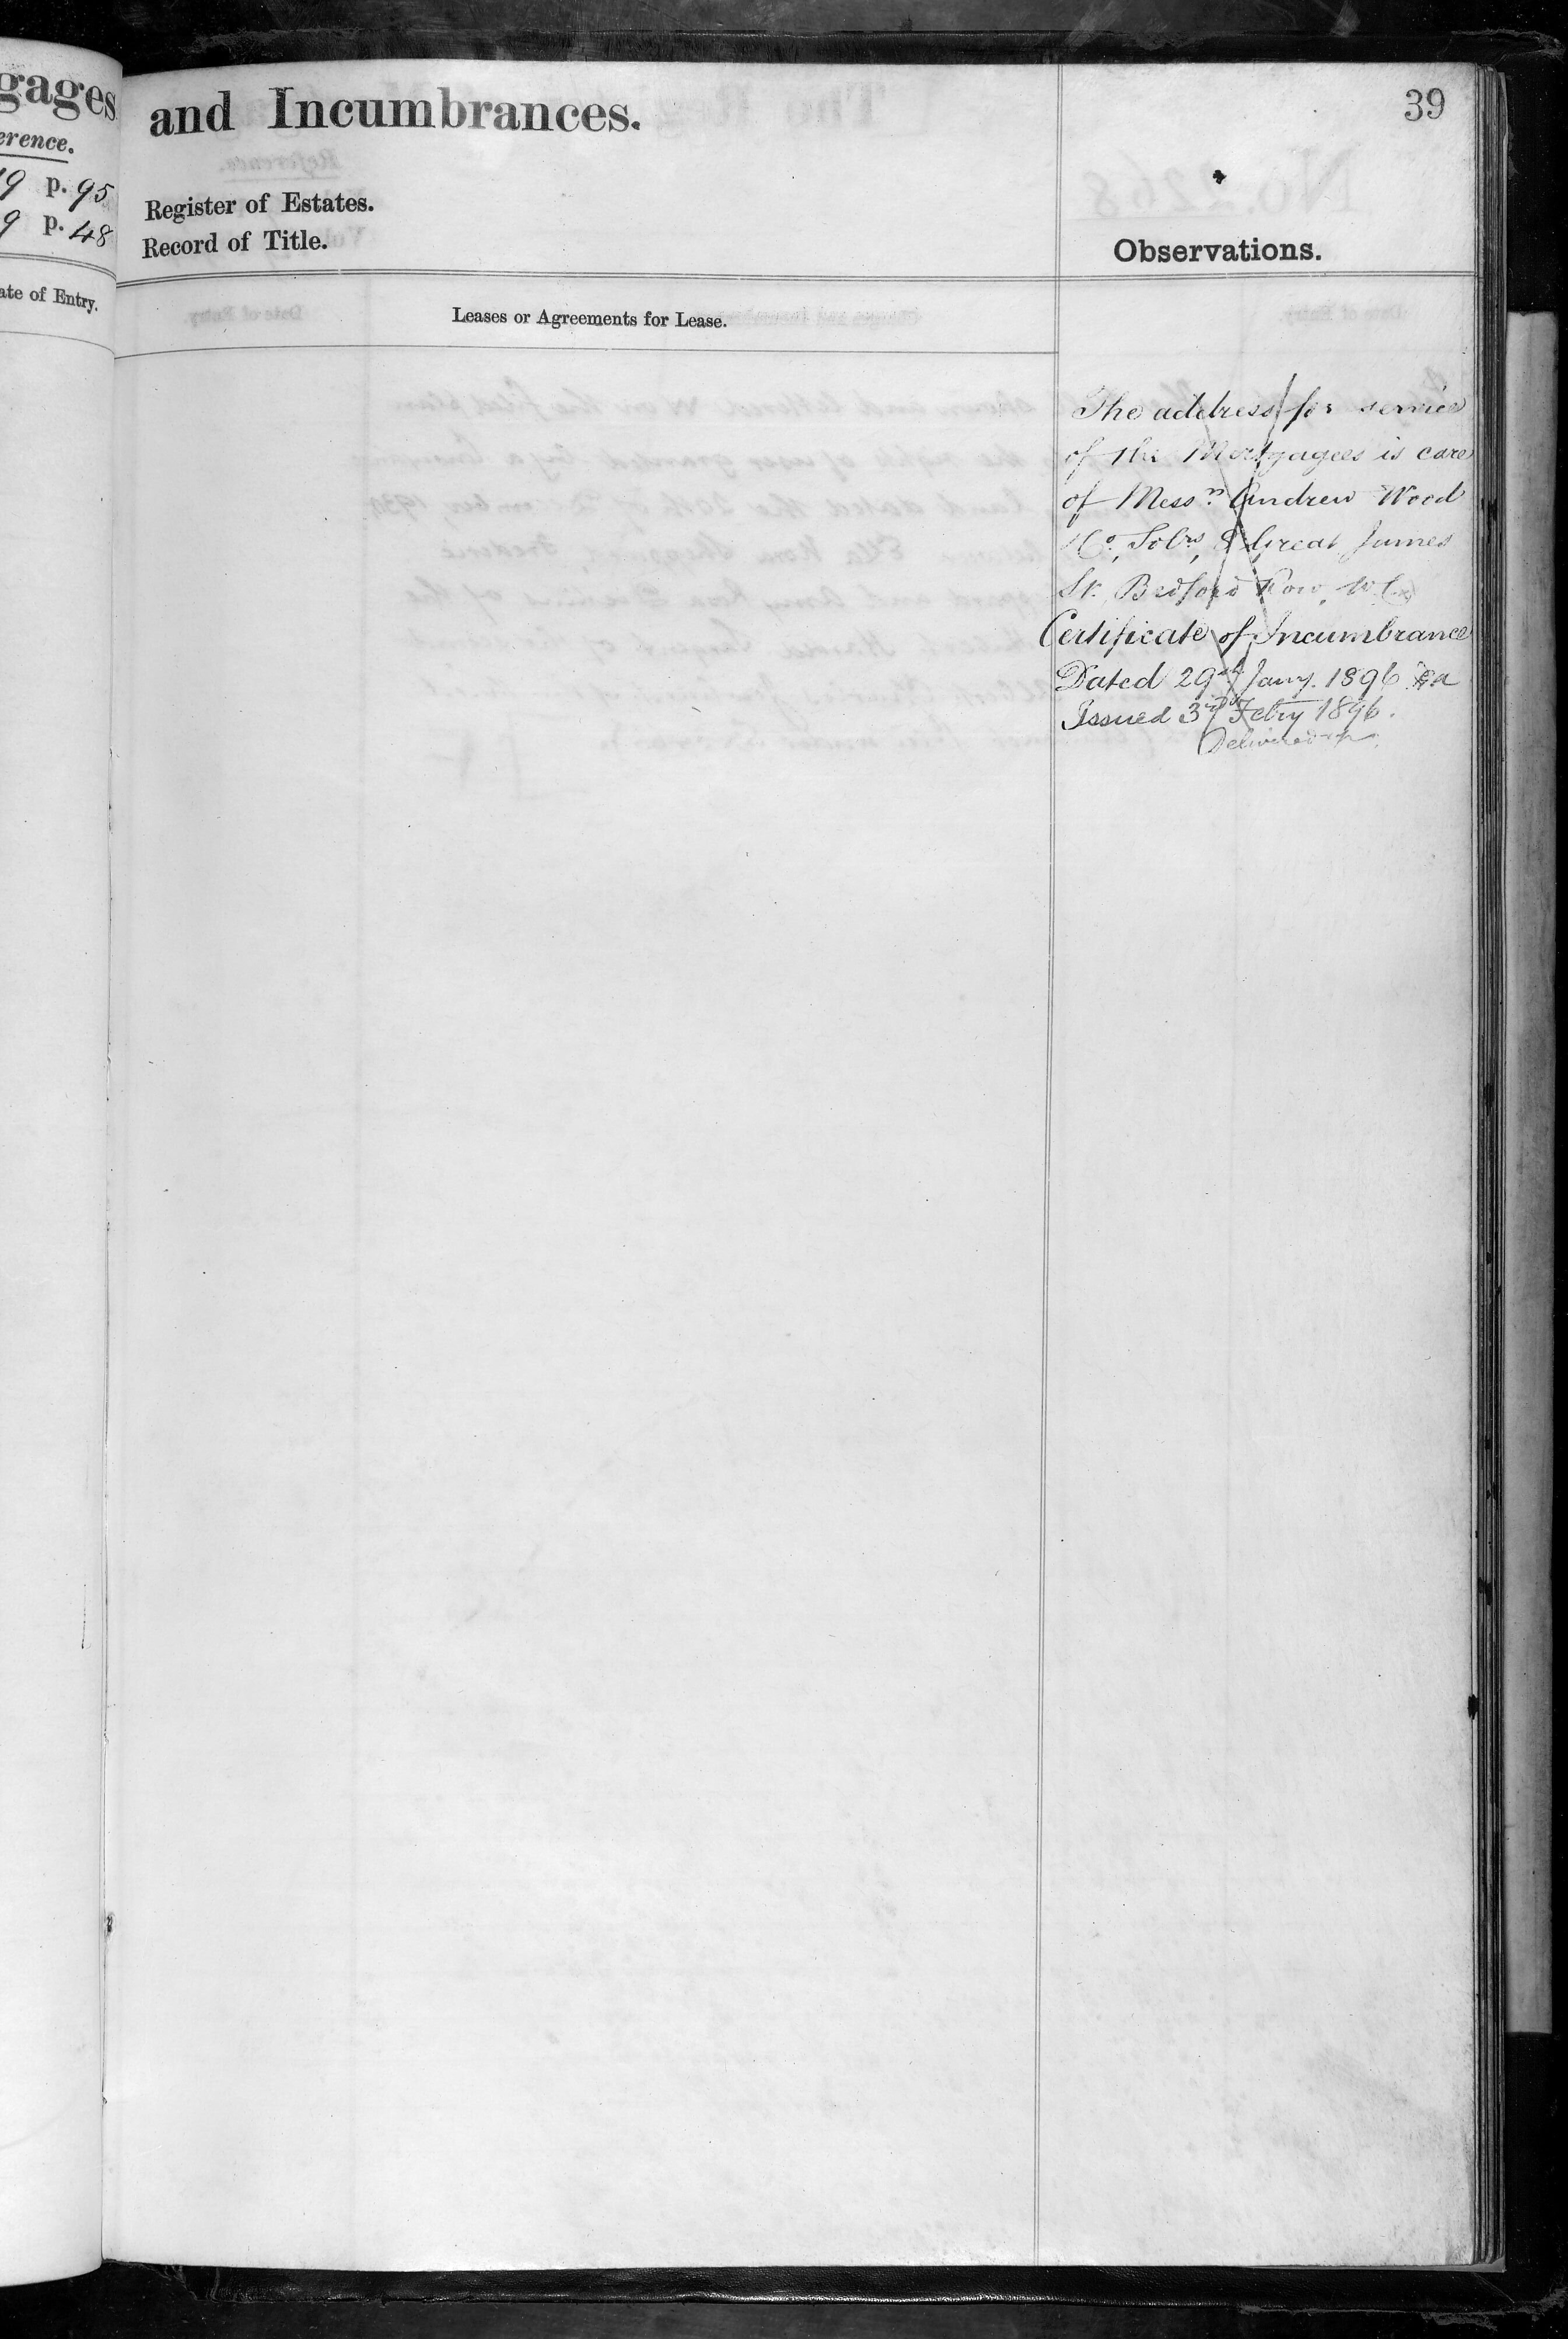 gages
erence.
19 p. 95
9 p. 48
ate of Entry.
and Incumbrances.
39
Register of Estates.
Record of Title.
Observations.
Leases or Agreements for Lease.
The address for service
of the Mortgagees is care
of Mess.rs Andrew Wood
& Co., Solrs, 8 Great James
St. Bedford Row, W.C.
Certificate of Incumbrance
Dated 29th Jany. 1896
Issued 3rd Febry 1896.
Delivered up.